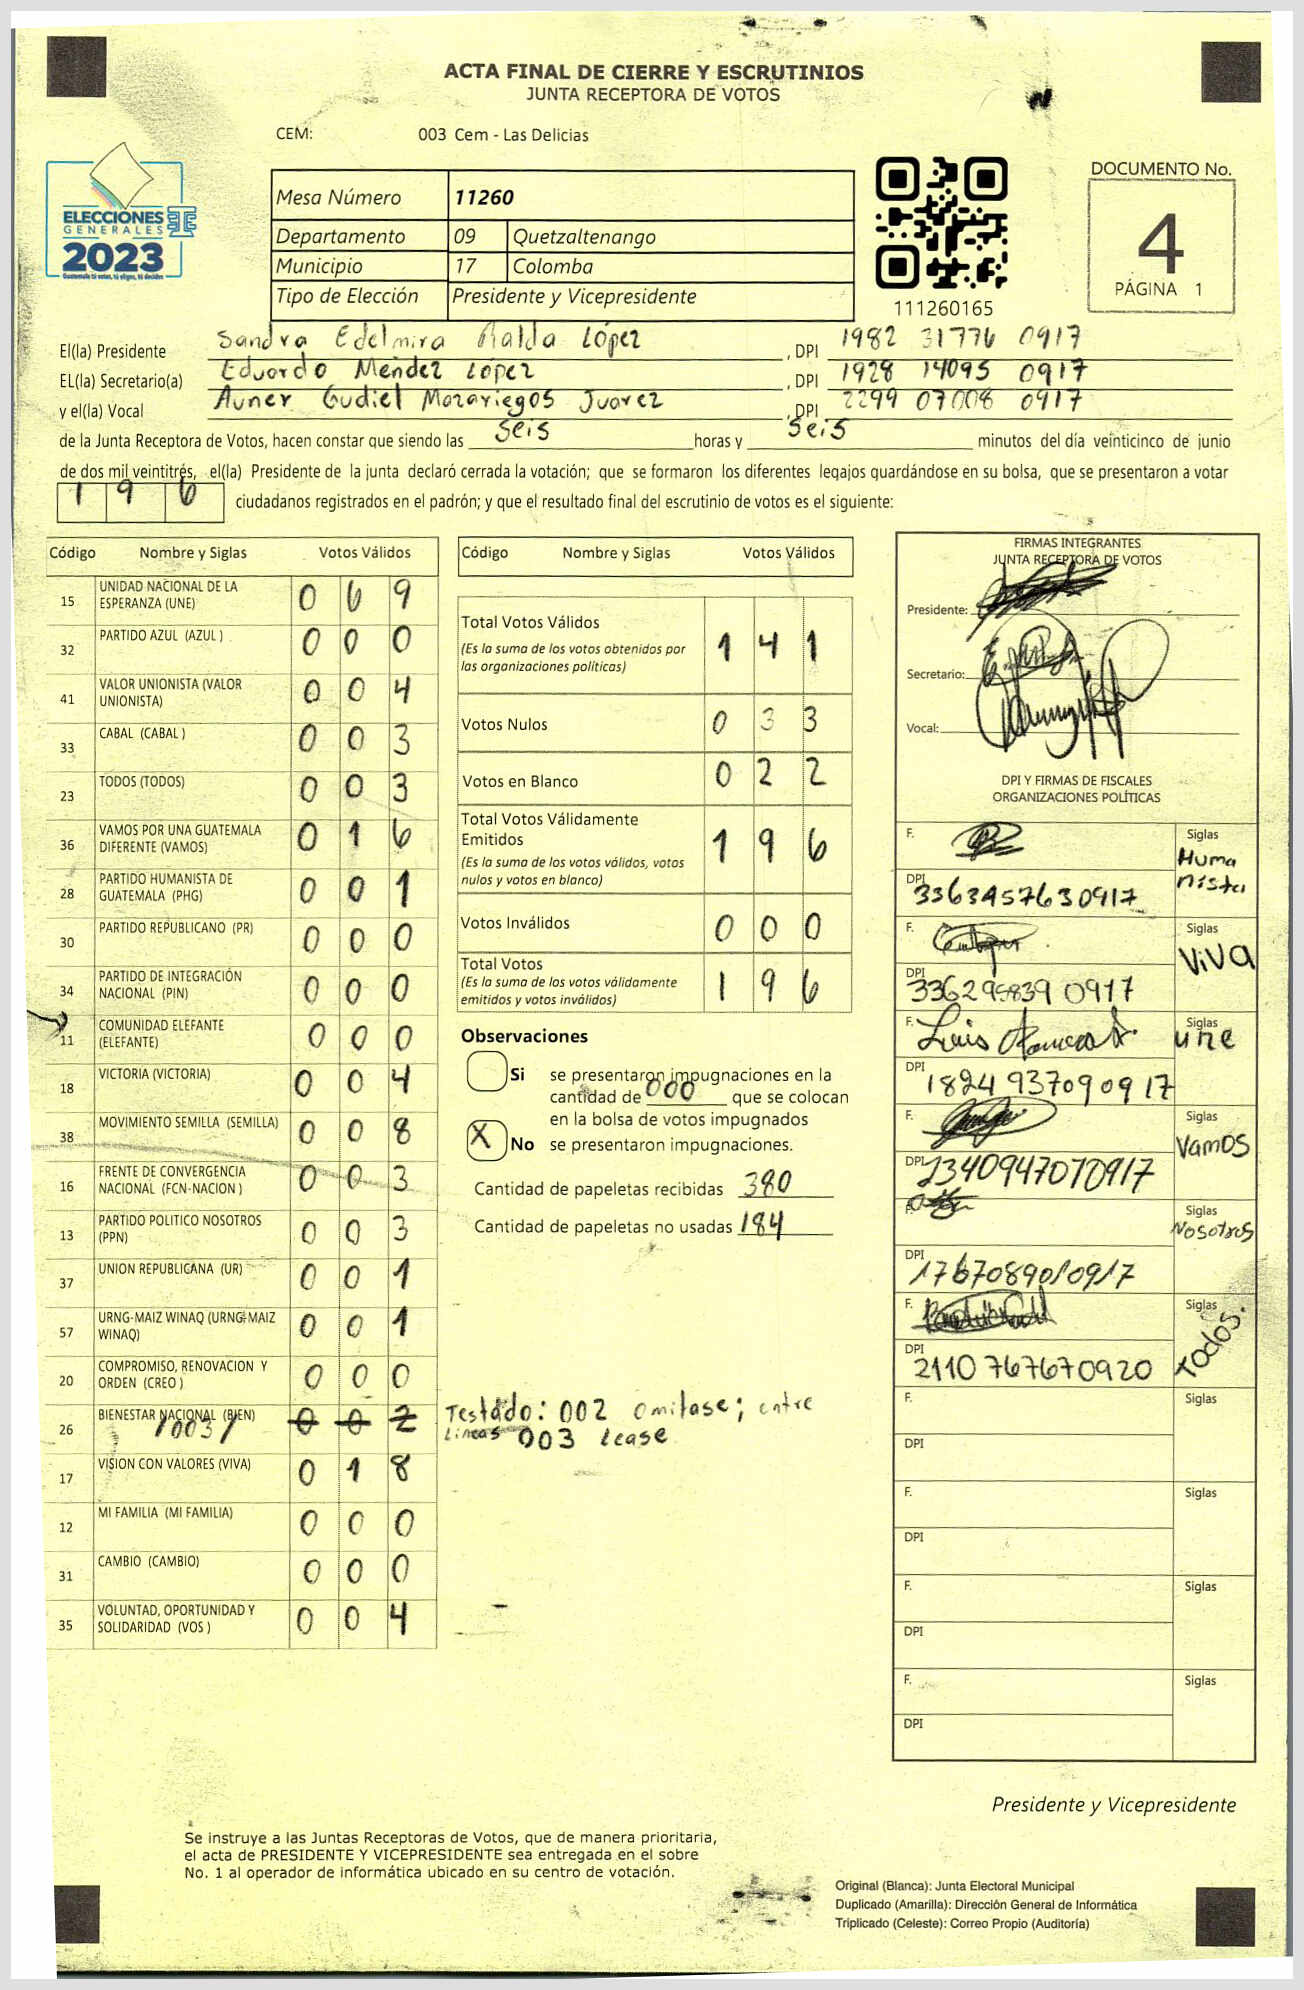 ACTA FINAL DE CIERRE Y ESCRUTINIOS
JUNTA RECEPTORA DE VOTOS
CEM: 003 Cem - Las Delicias
ELECCIONES
GENERALES
2023
Guatemala tú votas, tú eliges, tú decides
Mesa Número 11260
Departamento 09 Quetzaltenango
Municipio 17 Colomba
Tipo de Elección Presidente y Vicepresidente
111260165
DOCUMENTO No.
4
PÁGINA 1
El(la) Presidente Sandra Edelmira Ralda López , DPI 1982 31776 0917
EL(la) Secretario(a) Eduardo Méndez López , DPI 1928 14095 0917
y el(la) Vocal Auner Gudiel Mazariegos Juarez , DPI 2299 07008 0917
de la Junta Receptora de Votos, hacen constar que siendo las seis horas y seis minutos del día veinticinco de junio
de dos mil veintitrés, el(la) Presidente de la junta declaró cerrada la votación; que se formaron los diferentes legajos guardándose en su bolsa, que se presentaron a votar
196 ciudadanos registrados en el padrón; y que el resultado final del escrutinio de votos es el siguiente:
Código Nombre y Siglas Votos Válidos
15 UNIDAD NACIONAL DE LA ESPERANZA (UNE) 0 6 9
32 PARTIDO AZUL (AZUL ) 0 0 0
41 VALOR UNIONISTA (VALOR UNIONISTA) 0 0 4
33 CABAL (CABAL ) 0 0 3
23 TODOS (TODOS) 0 0 3
36 VAMOS POR UNA GUATEMALA DIFERENTE (VAMOS) 0 1 6
28 PARTIDO HUMANISTA DE GUATEMALA (PHG) 0 0 1
30 PARTIDO REPUBLICANO (PR) 0 0 0
34 PARTIDO DE INTEGRACIÓN NACIONAL (PIN) 0 0 0
11 COMUNIDAD ELEFANTE (ELEFANTE) 0 0 0
18 VICTORIA (VICTORIA) 0 0 4
38 MOVIMIENTO SEMILLA (SEMILLA) 0 0 8
16 FRENTE DE CONVERGENCIA NACIONAL (FCN-NACION ) 0 0 3
13 PARTIDO POLITICO NOSOTROS (PPN) 0 0 3
37 UNION REPUBLICANA (UR) 0 0 1
57 URNG-MAIZ WINAQ (URNG-MAIZ WINAQ) 0 0 1
20 COMPROMISO, RENOVACION Y ORDEN (CREO ) 0 0 0
26 BIENESTAR NACIONAL (BIEN) /003/ 0 0 2
17 VISION CON VALORES (VIVA) 0 1 8
12 MI FAMILIA (MI FAMILIA) 0 0 0
31 CAMBIO (CAMBIO) 0 0 0
35 VOLUNTAD, OPORTUNIDAD Y SOLIDARIDAD (VOS ) 0 0 4
Código Nombre y Siglas Votos Válidos
Total Votos Válidos 1 4 1
(Es la suma de los votos obtenidos por
las organizaciones políticas)
Votos Nulos 0 3 3
Votos en Blanco 0 2 2
Total Votos Válidamente
Emitidos 1 9 6
(Es la suma de los votos válidos, votos
nulos y votos en blanco)
Votos Inválidos 0 0 0
Total Votos 1 9 6
(Es la suma de los votos válidamente
emitidos y votos inválidos)
Observaciones
Si se presentaron impugnaciones en la
cantidad de 000 que se colocan
en la bolsa de votos impugnados
X No se presentaron impugnaciones.
Cantidad de papeletas recibidas 380
Cantidad de papeletas no usadas 184
Testado: 002 omitase; entre
Lineas 003 lease
FIRMAS INTEGRANTES
JUNTA RECEPTORA DE VOTOS
Presidente:
Secretario:
Vocal:
DPI Y FIRMAS DE FISCALES
ORGANIZACIONES POLÍTICAS
F. Siglas Humanista
DPI 3363457630917
F. Siglas VIVA
DPI 0917
F. Luis Siglas une
DPI 1824 937090917
F. Siglas Vamos
DPI 2340947070917
F. Siglas Nosotros
DPI 1767089010917
F. Siglas Todos.
DPI 2110 767670920
F. Siglas
DPI
F. Siglas
DPI
F. Siglas
DPI
F. Siglas
DPI
Presidente y Vicepresidente
Se instruye a las Juntas Receptoras de Votos, que de manera prioritaria,
el acta de PRESIDENTE Y VICEPRESIDENTE sea entregada en el sobre
No. 1 al operador de informática ubicado en su centro de votación.
Original (Blanca): Junta Electoral Municipal
Duplicado (Amarilla): Dirección General de Informática
Triplicado (Celeste): Correo Propio (Auditoría)